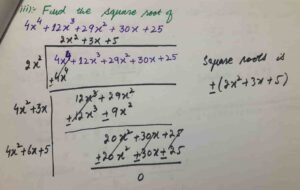 iii):- Find the square root of
4x⁴ + 12x³ + 29x² + 30x + 25
2x² + 3x + 5
2x² 4x⁴ + 12x³ + 29x² + 30x + 25
± 4x⁴
4x² + 3x 12x³ + 29x²
± 12x³ ± 9x²
4x² + 6x + 5 20x² + 30x + 25
± 20x² ± 30x ± 25
0
Square roots is
± (2x² + 3x + 5)